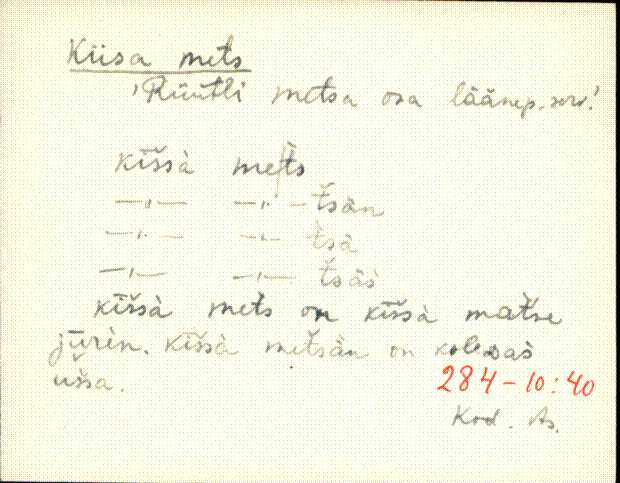 Kiisa mets
'Rüütli metsa osa läänep. serv.'
kišsà me|ts
—"— —"— tsän
—"— —"— tsä
—"— —"— tsäs
kišsà mets on kišsà matse
jūrèn. kišsà metsän on
ušsa.
284-10:40
Kod. As.